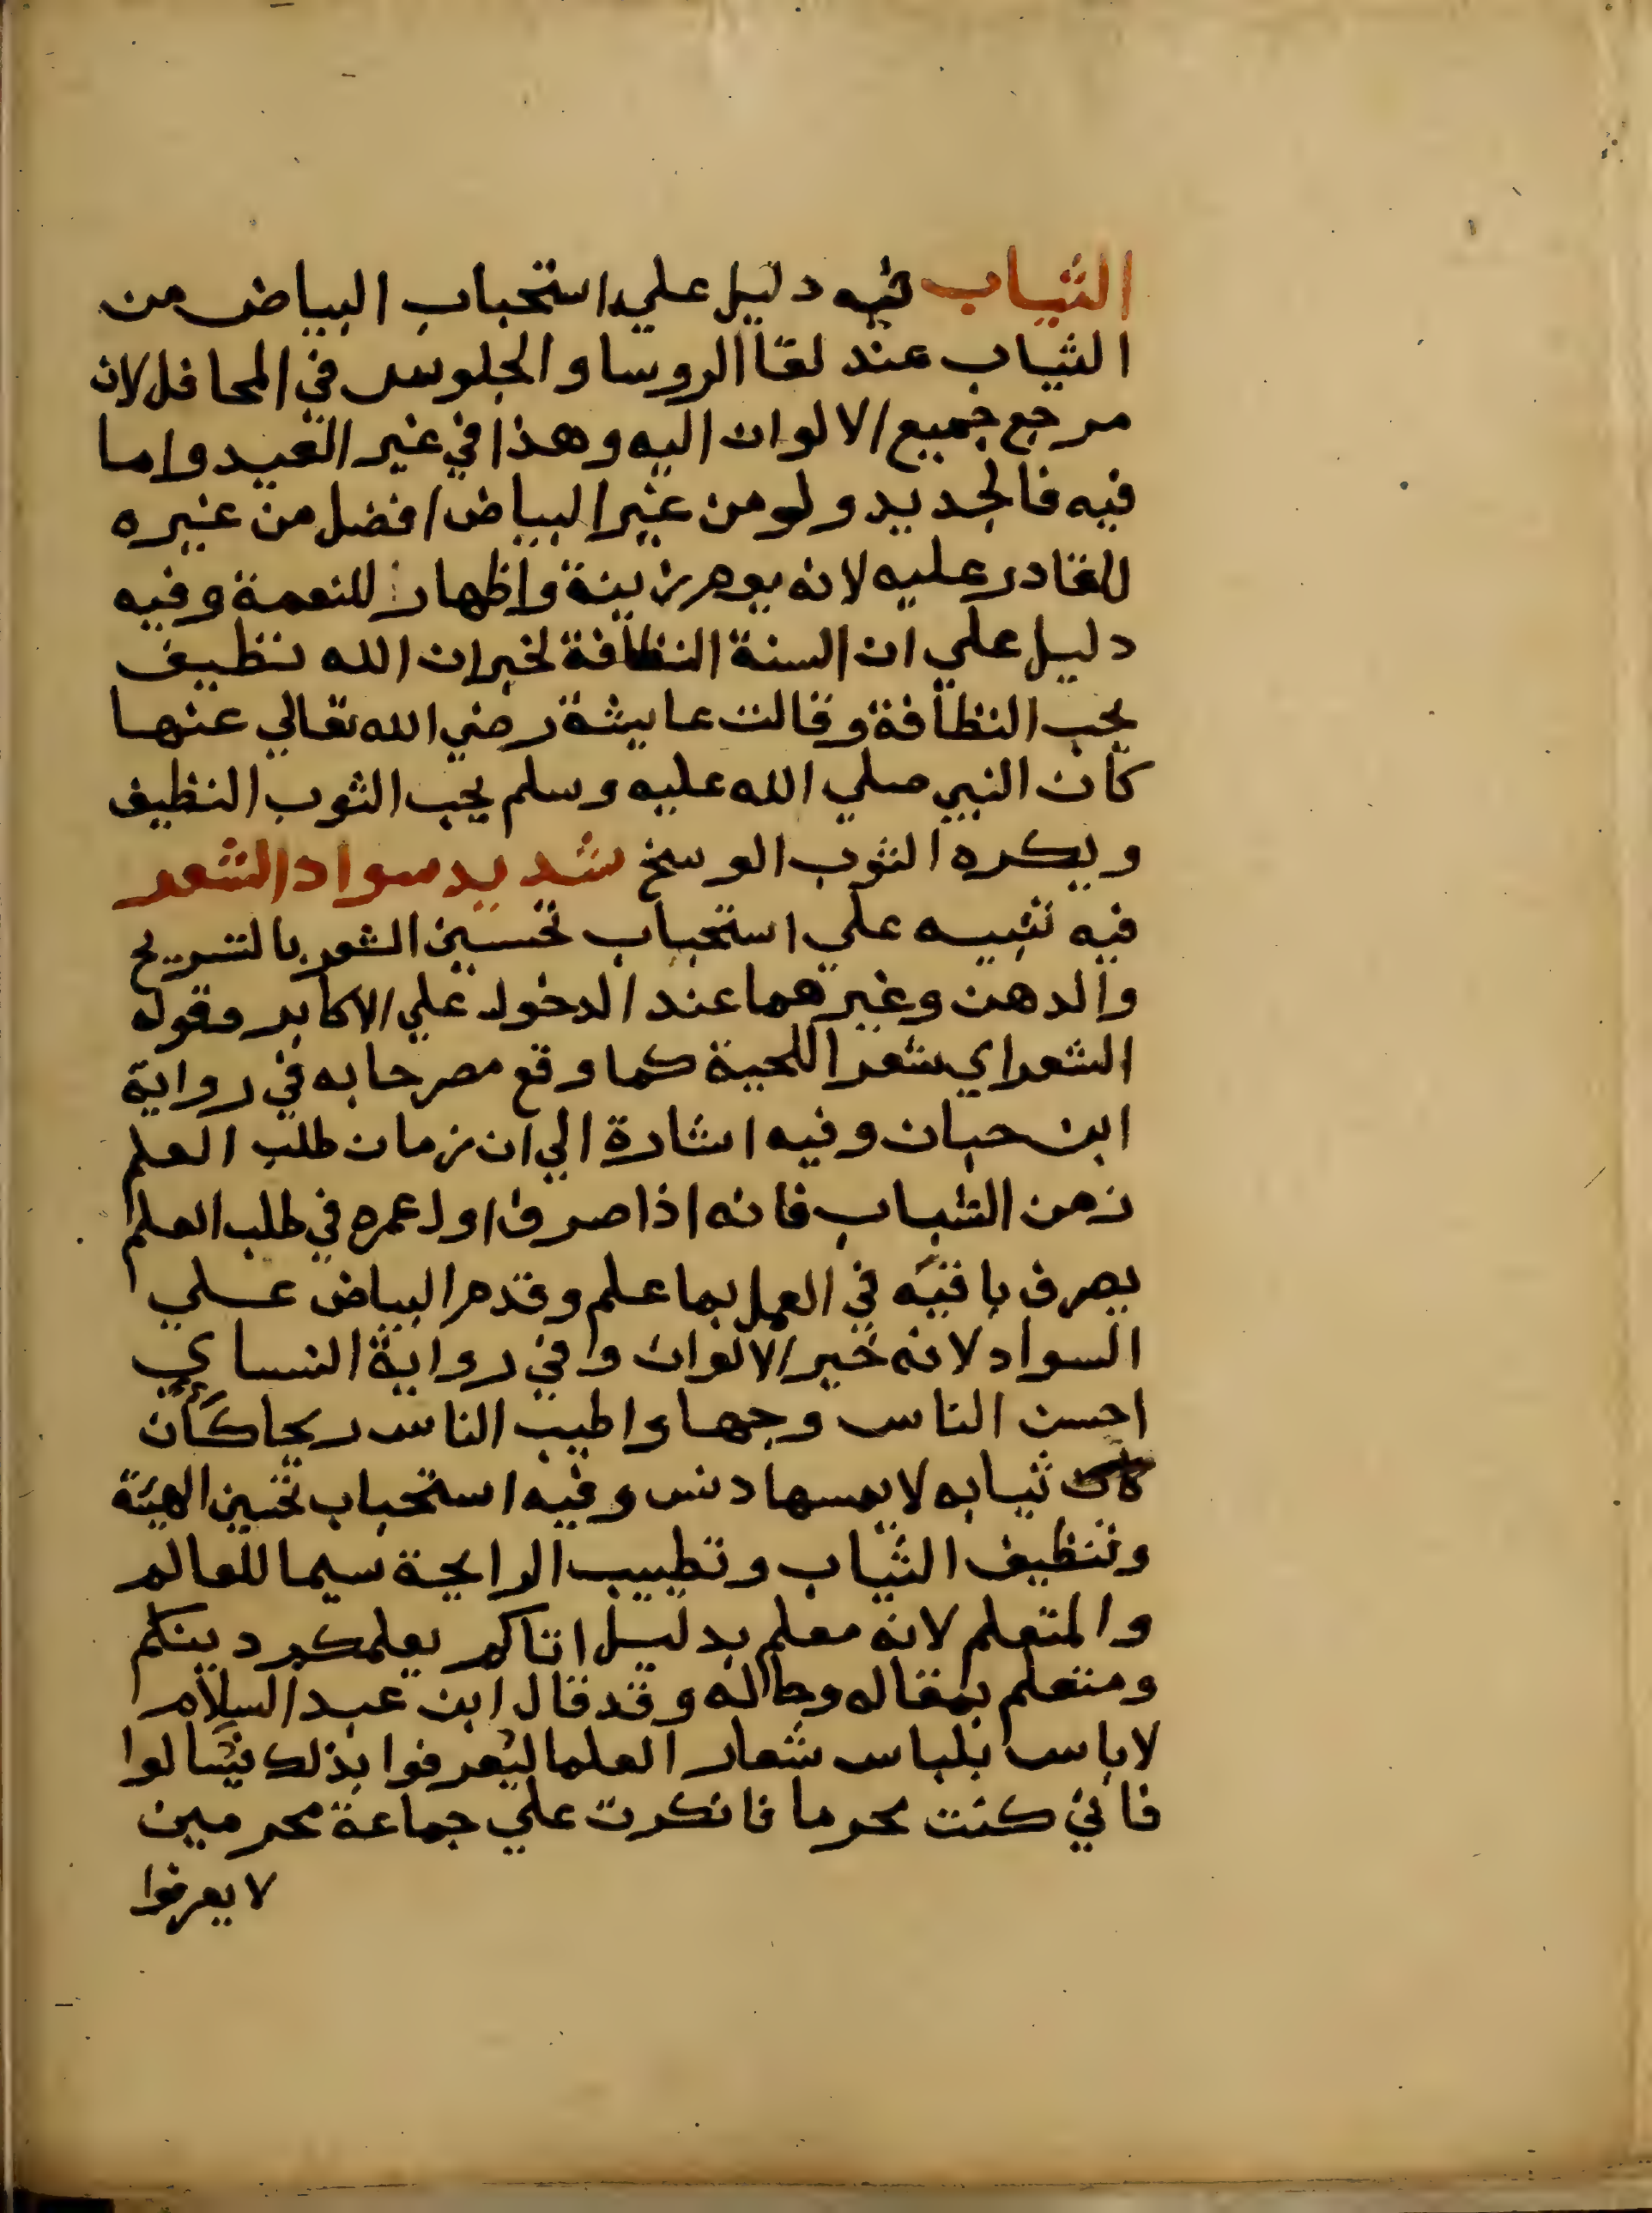 الثياب فيه دليل علي استحباب البياض من
الثياب عند لقا الروسا والجلوس في المحافل لان
مرجع جميع الالوان اليه وهذا في غير العيد واما
فيه فالجديد ولو من غير البياض افضل من غيره
للقادر عليه لانه يوم زينة واظهار للنعمة وفيه
دليل علي ان السنة النظافة لخبر ان الله نظيف
يحب النظافة وقالت عايشة رضي الله تعالي عنها
كان النبي صلي الله عليه وسلم يحب الثوب النظيف
ويكره الثوب الوسخ شديد سواد الشعر
فيه تنبيه علي استحباب تحسين الشعر بالتسريح
والدهن وغيرهما عند الدخول علي الاكابر وقوله
الشعر اي شعر اللحية كما وقع مصرحا به في رواية
ابن حبان وفيه اشارة الي ان زمان طلب العلم
زمن الشباب فانه اذا صرف اول عمره في طلب العلم
يصرف باقيه في العمل بما علم وقدم البياض علي
السواد لانه خير الالوان وفي رواية النساي
احسن الناس وجها واطيب الناس ريحا كأن
ثيابه لا يمسها دنس وفيه استحباب تحسين الهيئة
وتنظيف الثياب وتطييب الرايحة سيما للعالم
والمتعلم لانه معلم بدليل اتاكم يعلمكم دينكم
ومتعلم بمقاله وحاله وقد قال ابن عبد السلام
لا باس بلباس شعار العلما ليعرفوا بذلك فيسالوا
فاني كنت محرما فانكرت علي جماعة محرمين
لا يعرفوا